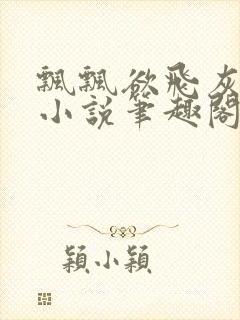 飄飄欲飛灰
小說筆趣閣
穎小穎